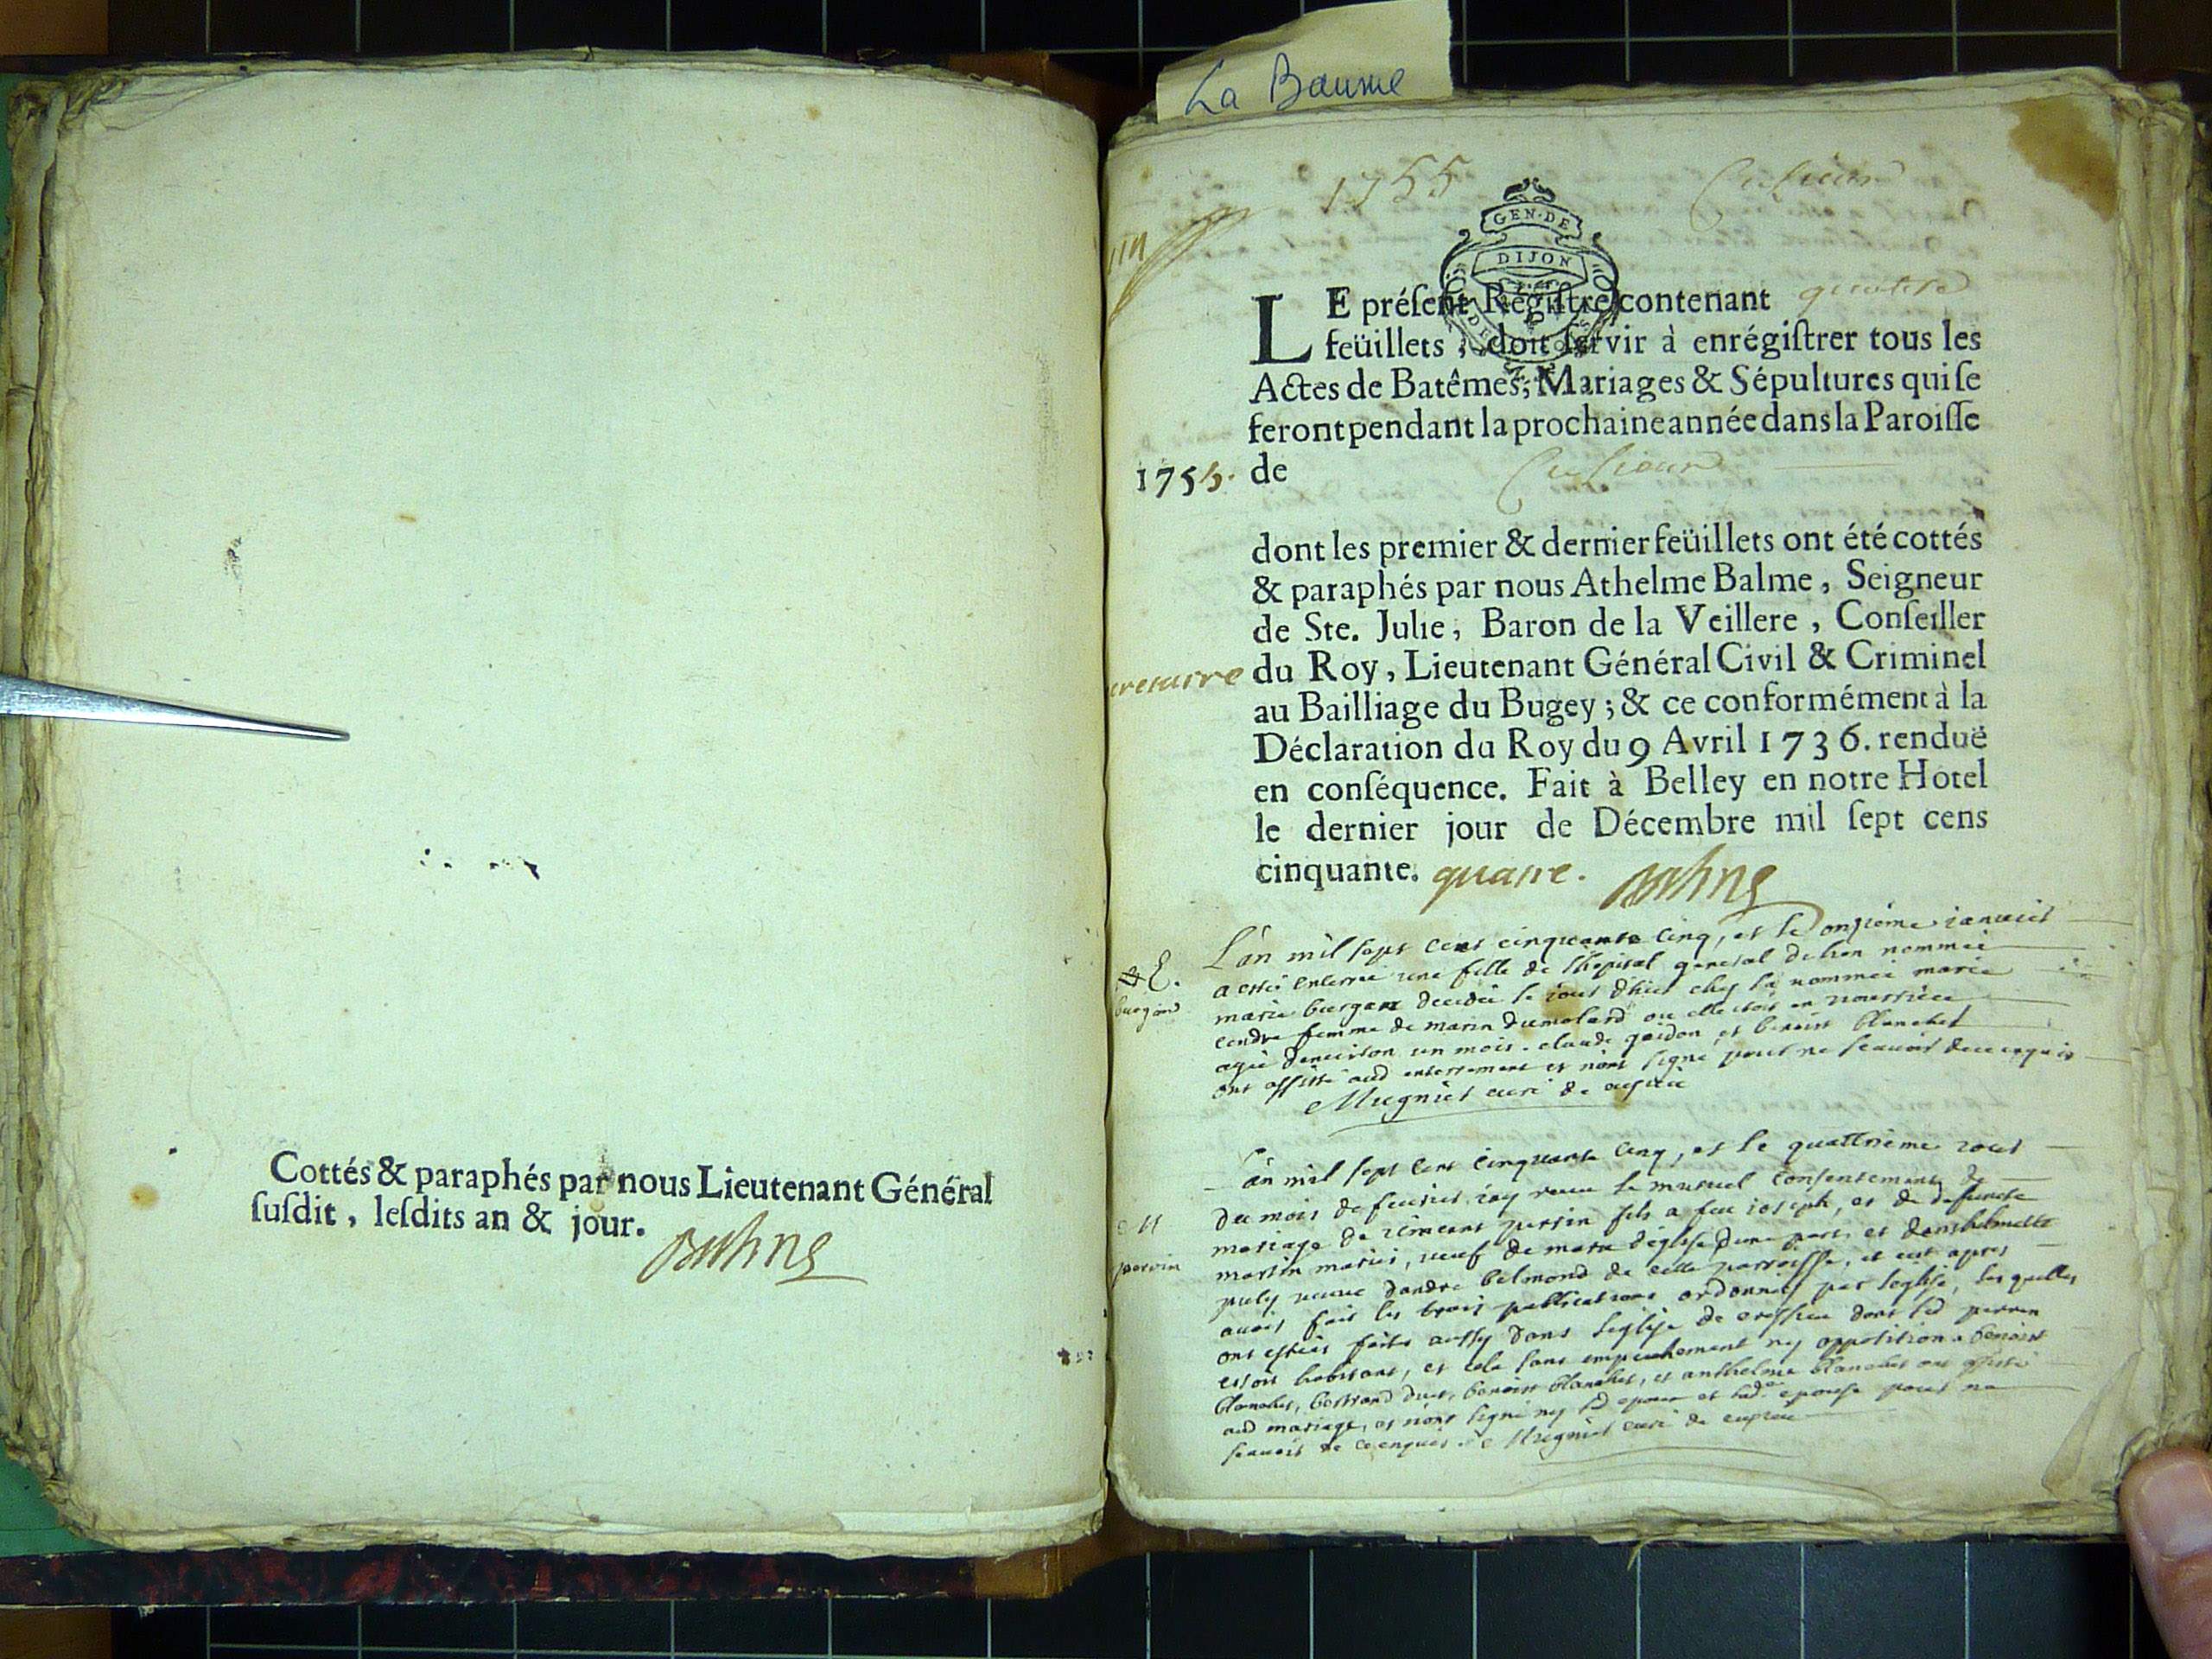 Cottés & paraphés par nous Lieutenant Général
ſuſdit, leſdits an & jour.
La Baume
1755
GEN. DE
DIJON
LE préſent Régiſtre contenant
feüillets, doit ſervir à enrégiſtrer tous les
Actes de Batêmes, Mariages & Sépultures qui ſe
feront pendant la prochaine année dans la Paroiſſe
1755. de
dont les premier & dernier feüillets ont été cottés
& paraphés par nous Athelme Balme, Seigneur
de Ste. Julie, Baron de la Veillere, Conſeiller
du Roy, Lieutenant Général Civil & Criminel
au Bailliage du Bugey; & ce conformément à la
Déclaration du Roy du 9 Avril 1736. renduë
en conſéquence. Fait à Belley en notre Hôtel
le dernier jour de Décembre mil ſept cens
cinquante. quatre.
L'an mil sept cent cinquante cinq, et le onzième janvier
a esté enterrée une fille de l'hopital general de lion nommée
marie decedée le jour d'hier chez la nommée marie
femme de marin dumolard ou elle etoit en nourrice
agée d'environ un mois. claude goidon, et benoist blanchet
ont assisté aud enterrement et n'ont signé pour ne scavoir de ce enquis
curé de
L'an mil sept cent cinquante cinq, et le quattrieme jour
du mois de fevrier, j'ay receu le mutuel consentement de
mariage de perrin fils a feu joseph, et de defunte
veuf de d'une part, et
veuve d'andre belmond de cette parroisse, et ce apres
avoir fait les trois publications ordonnées par l'eglise, lesquelles
ont estées faites aussy dans l'eglise de dont led perrin
etoit habitant, et cela sans empechement ny opposition. benoist
blanchet, benoist blanchet, et anthelme blanchet ont assisté
aud mariage, et n'ont signé ny led epoux et lad. epouse pour ne
scavoir de ce enquis. curé de